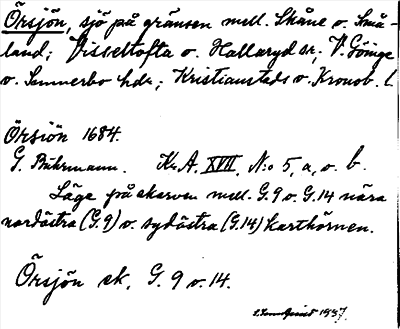 Örsjön, sjö på gränsen mell. Skåne o. Små-
land; Visseltofta o. Hallaryd sr; V. Göinge
o. Sunnerbo hdr; Kristianstads o. Kronob. l.
Örsiön 1684.
G. Buhrmann. Kr.A. XVII, N:o 5, a, o. b.
Läge på skarven mell. G.9 o. G.14 nära
nordöstra (G.9) o. sydöstra (G.14) karthörnen.
Örsjön ek. G. 9 o. 14.
1937.